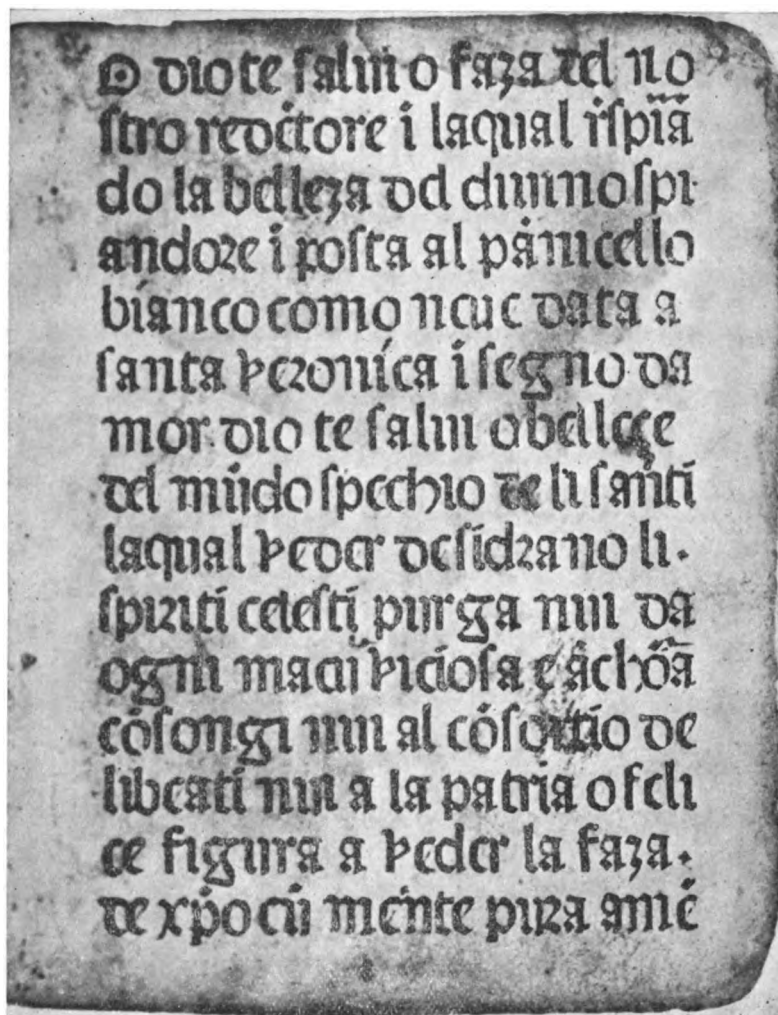 O dio te salui o faza del no
stro redẽtore ĩ laqual rispiã
do la belleza del diuino spi
andore ĩ posta al pãnicello
bianco como neue data a
santa veronica ĩ segno da
mor. dio te salui o belleçe
del mũdo specchio de li santi
laqual veder desidrano li.
spiriti celesti purga nui da
ogni viciosa e
cõsongi nui al cõsortio de
li beati nui a la patria o feli
ce figura a veder la faza.
de xp̃o cũ mente pura amẽ